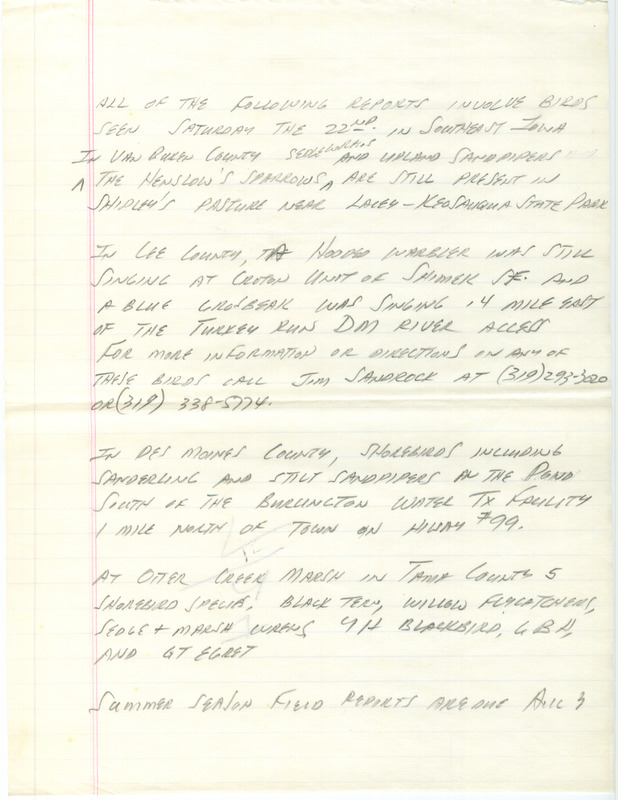 ALL OF THE FOLLOWING REPORTS INVOLVE BIRDS
SEEN SATURDAY THE 22ND. IN SOUTHEAST IOWA
IN VAN BUREN COUNTY SEDGE WRENS AND UPLAND SANDPIPERS
^ THE HENSLOW'S SPARROWS, ARE STILL PRESENT IN
SHIPLEY'S PASTURE NEAR LACEY-KEOSAUQUA STATE PARK
IN LEE COUNTY, A HOODED WARBLER WAS STILL
SINGING AT CROTON UNIT OF SHIMEK S.F. AND
A BLUE GROSBEAK WAS SINGING .4 MILE EAST
OF THE TURKEY RUN DM RIVER ACCESS
FOR MORE INFORMATION OR DIRECTIONS ON ANY OF
THESE BIRDS CALL JIM SANDROCK AT (319) 293-3020
OR (319) 338-5774.
IN DES MOINES COUNTY, SHOREBIRDS INCLUDING
SANDERLING AND STILT SANDPIPERS IN THE POND
SOUTH OF THE BURLINGTON WATER TX FACILITY
1 MILE NORTH OF TOWN ON HIWAY #99.
AT OTTER CREEK MARSH IN TAMA COUNTY 5
SHOREBIRD SPECIES, BLACK TERN, WILLOW FLYCATCHERS,
SEDGE + MARSH WRENS YH BLACKBIRD, GBH,
AND GT EGRET
SUMMER SEASON FIELD REPORTS ARE DUE AUG 3